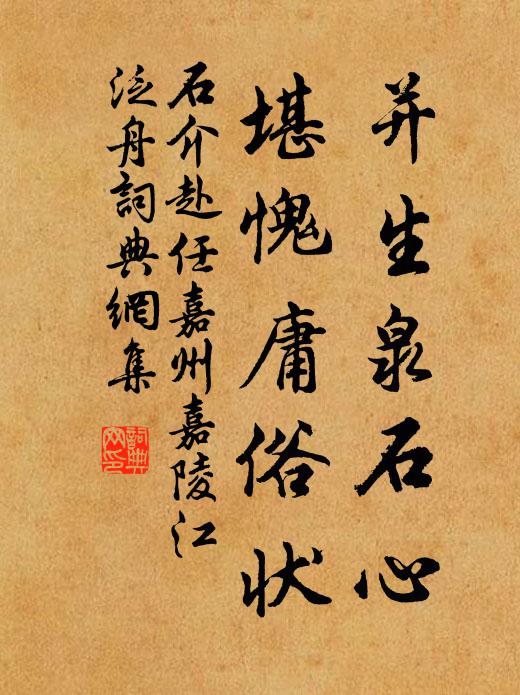 并生泉石心
堪愧庸俗状
石介赴任嘉州嘉陵江
泛舟詞典網集
詞典網印